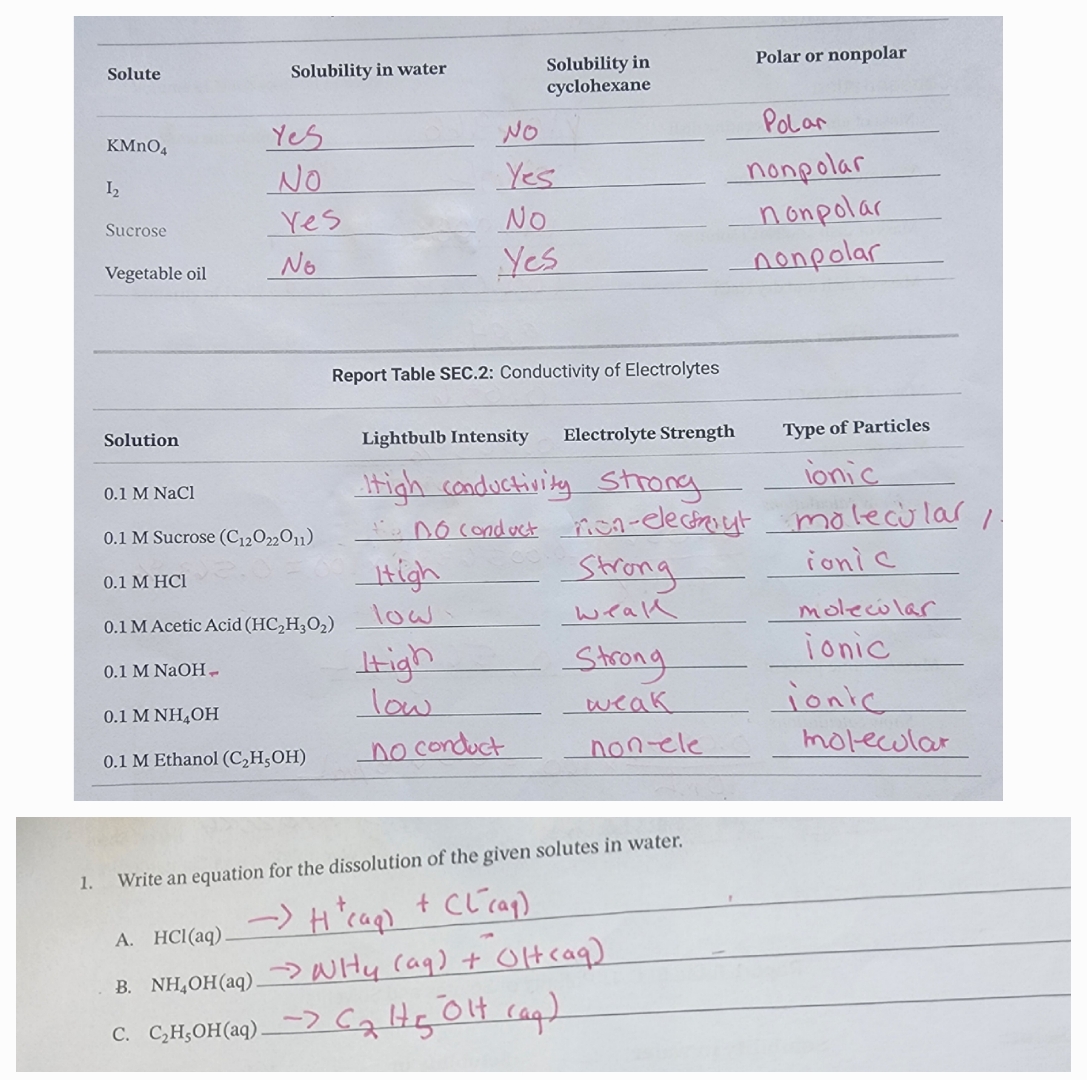 Solute Solubility in water Solubility in cyclohexane Polar or nonpolar
KMnO₄ Yes NO Polar
I₂ NO Yes nonpolar
Sucrose Yes NO nonpolar
Vegetable oil No Yes nonpolar
Report Table SEC.2: Conductivity of Electrolytes
Solution Lightbulb Intensity Electrolyte Strength Type of Particles
0.1 M NaCl High conductivity Strong ionic
0.1 M Sucrose (C₁₂O₂₂O₁₁) no conduct molecular
0.1 M HCl High Strong ionic
0.1 M Acetic Acid (HC₂H₃O₂) low weak molecular
0.1 M NaOH High Strong ionic
0.1 M NH₄OH low weak ionic
0.1 M Ethanol (C₂H₅OH) no conduct non-ele molecular
1. Write an equation for the dissolution of the given solutes in water.
A. HCl(aq) → H⁺(aq) + Cl⁻(aq)
B. NH₄OH(aq) → NH₄ (aq) + ⁻OH(aq)
C. C₂H₅OH(aq) → C₂H₅⁻OH (aq)